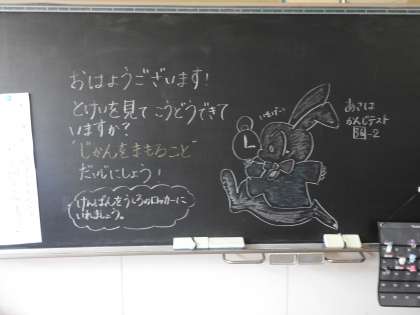 おはようございます!
とけいを見てこうどうできて
いますか?
"じかんをまもること"
だいじにしましょう!
けんばんをうしろのロッカーに
いれましょう。
あさは
かんじテスト